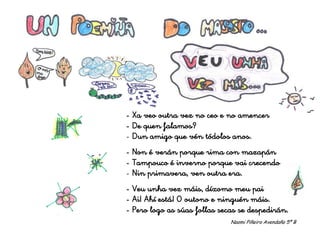 UN POEMIÑA DO MAESTRO...
VEU UNHA
VEZ MÁIS...
- Xa veo outra vez no ceo e no amencer
- De quen falamos?
- Dun amigo que vén tódolos anos.
- Non é verán porque rima con mazapán
- Tampouco é inverno porque vai crecendo
- Nin primavera, ven outra era.
- Veu unha vez máis, dízomo meu pai
- Ai! Ahí está! O outono e ninguén máis.
- Pero logo as súas follas secas se despedirán.
Naomi Piñeiro Avendaño 5º B